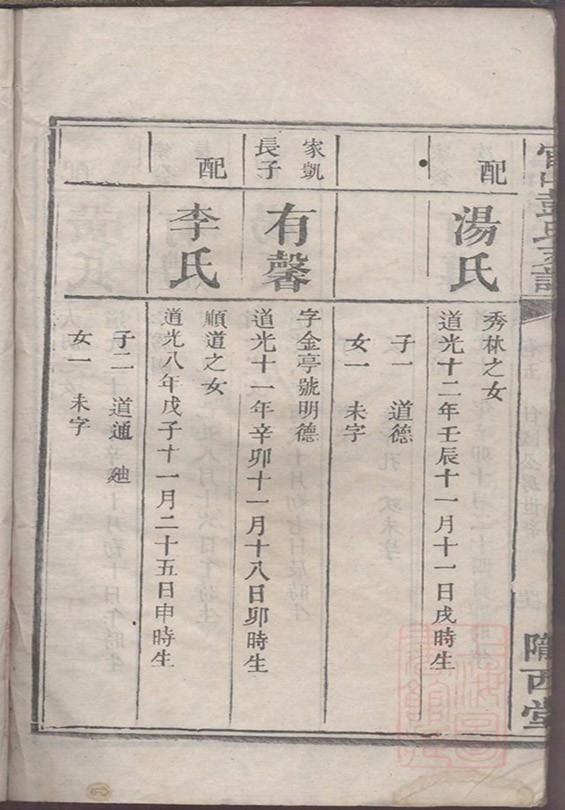 配
湯氏
秀林之女
道光十二年壬辰十一月十一日戌時生
子一 道德
女一 未字
家凱
長子
有馨
字金亭號明德
道光十一年辛卯十一月十八日卯時生
配
李氏
順道之女
道光八年戊子十一月二十五日申時生
子二 道通
女一 未字
西堂